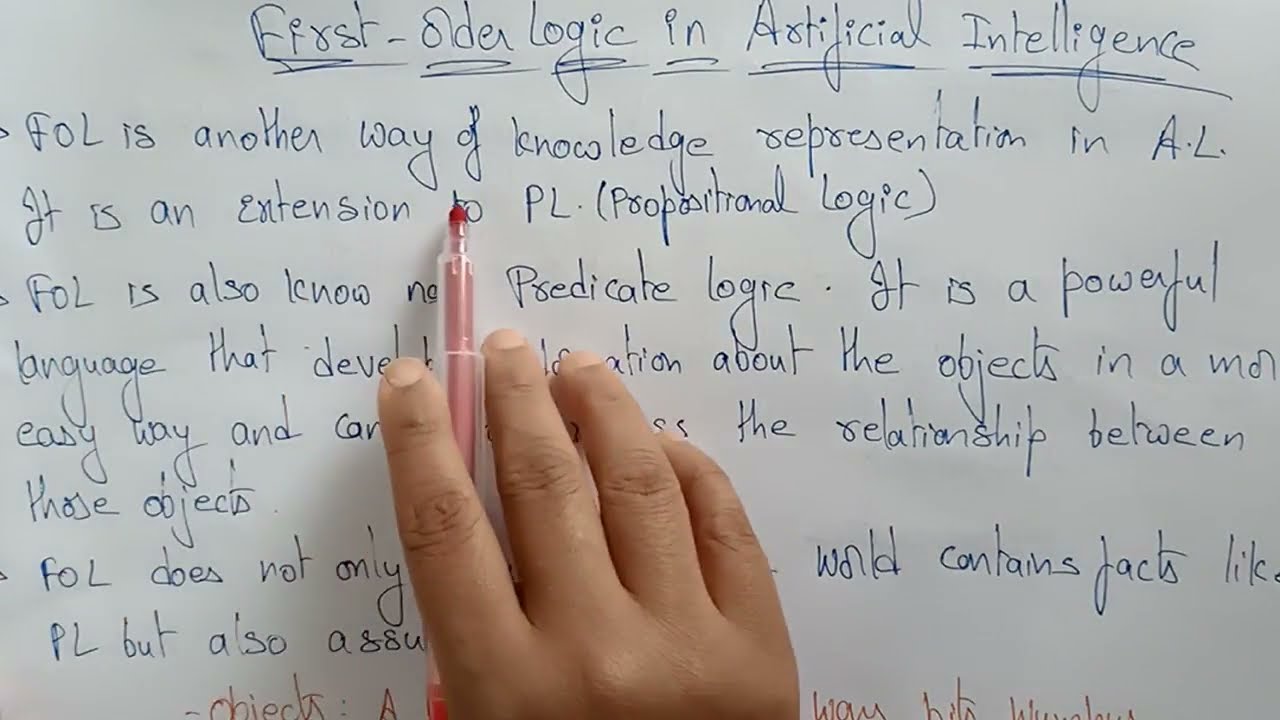 First-Older Logic in Artificial Intelligence
FOL is another way of knowledge representation in A.I.
It is an extension to PL. (Propositional Logic)
FOL is also know Predicate logic. It is a powerful
language that about the objects in a
easy way and the relationship between
those objects.
FOL does not only world contains facts like
PL but also
- objects: A